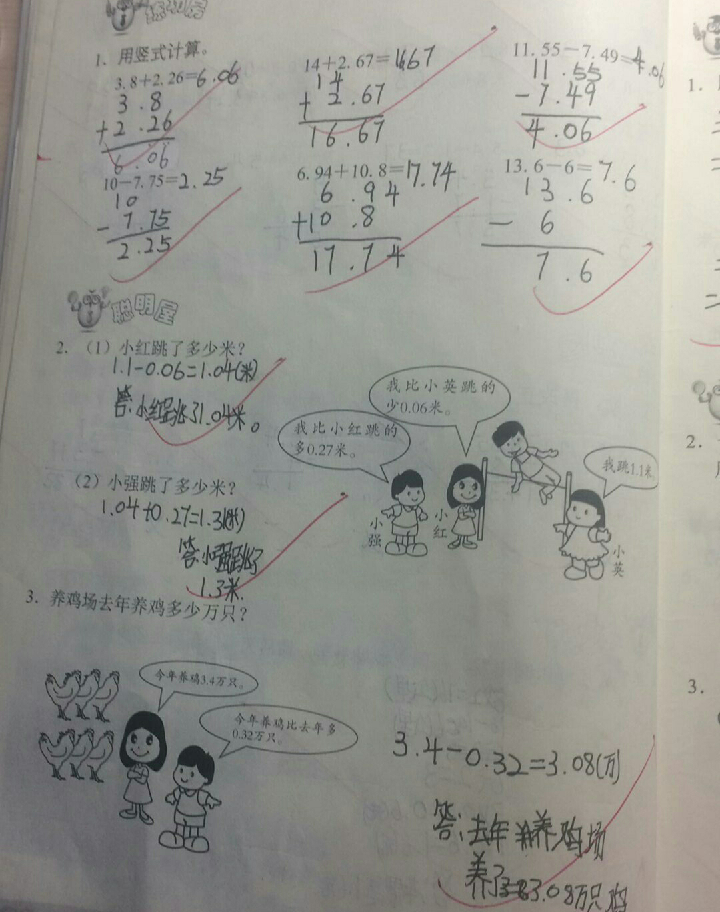 练功房
1. 用竖式计算。
3.8+2.26=6.06
3.8
+2.26
6.06
14+2.67=16.67
14
+2.67
16.67
11.55-7.49=4.06
11.55
-7.49
4.06
10-7.75=2.25
10
-7.75
2.25
6.94+10.8=17.74
6.94
+10.8
17.74
13.6-6=7.6
13.6
-6
7.6
聪明屋
2. （1）小红跳了多少米？
1.1-0.06=1.04(米)
答：小红跳了1.04米。
（2）小强跳了多少米？
1.04+0.27=1.31(米)
答：小强跳了
1.3米.
我比小英跳的
少0.06米。
我比小红跳的
多0.27米。
我跳1.1米
小强
小红
小英
3. 养鸡场去年养鸡多少万只？
今年养鸡3.4万只。
今年养鸡比去年多
0.32万只。
3.4-0.32=3.08(万)
答：去年养鸡场
养了3.08万只鸡
1.
2.
3.